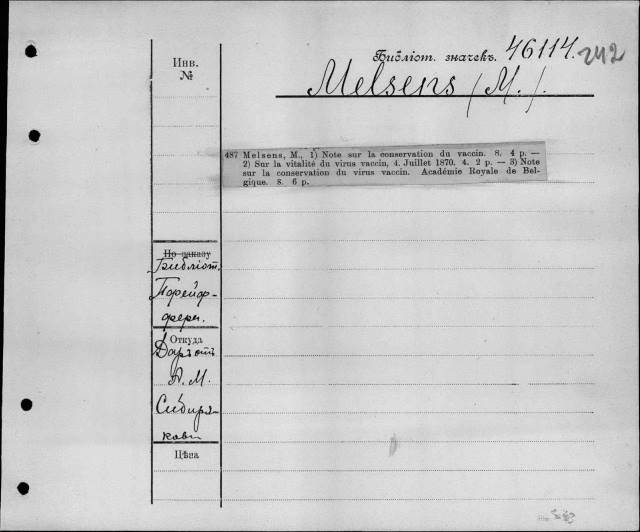 Инв.
№
Библіот. значекъ. 46114. 242
Melsens (M.).
487 Melsens, M., 1) Note sur la conservation du vaccin. 8. 4 p. —
2) Sur la vitalité du virus vaccin, 4. Juillet 1870. 4. 2 p. — 3) Note
sur la conservation du virus vaccin. Académie Royale de Bel-
gique. 8. 6 p.
По заказу
Библіот.
Пфейф-
фера.
Откуда
Даръ отъ
А. М.
Сибиря-
кова
Цѣна